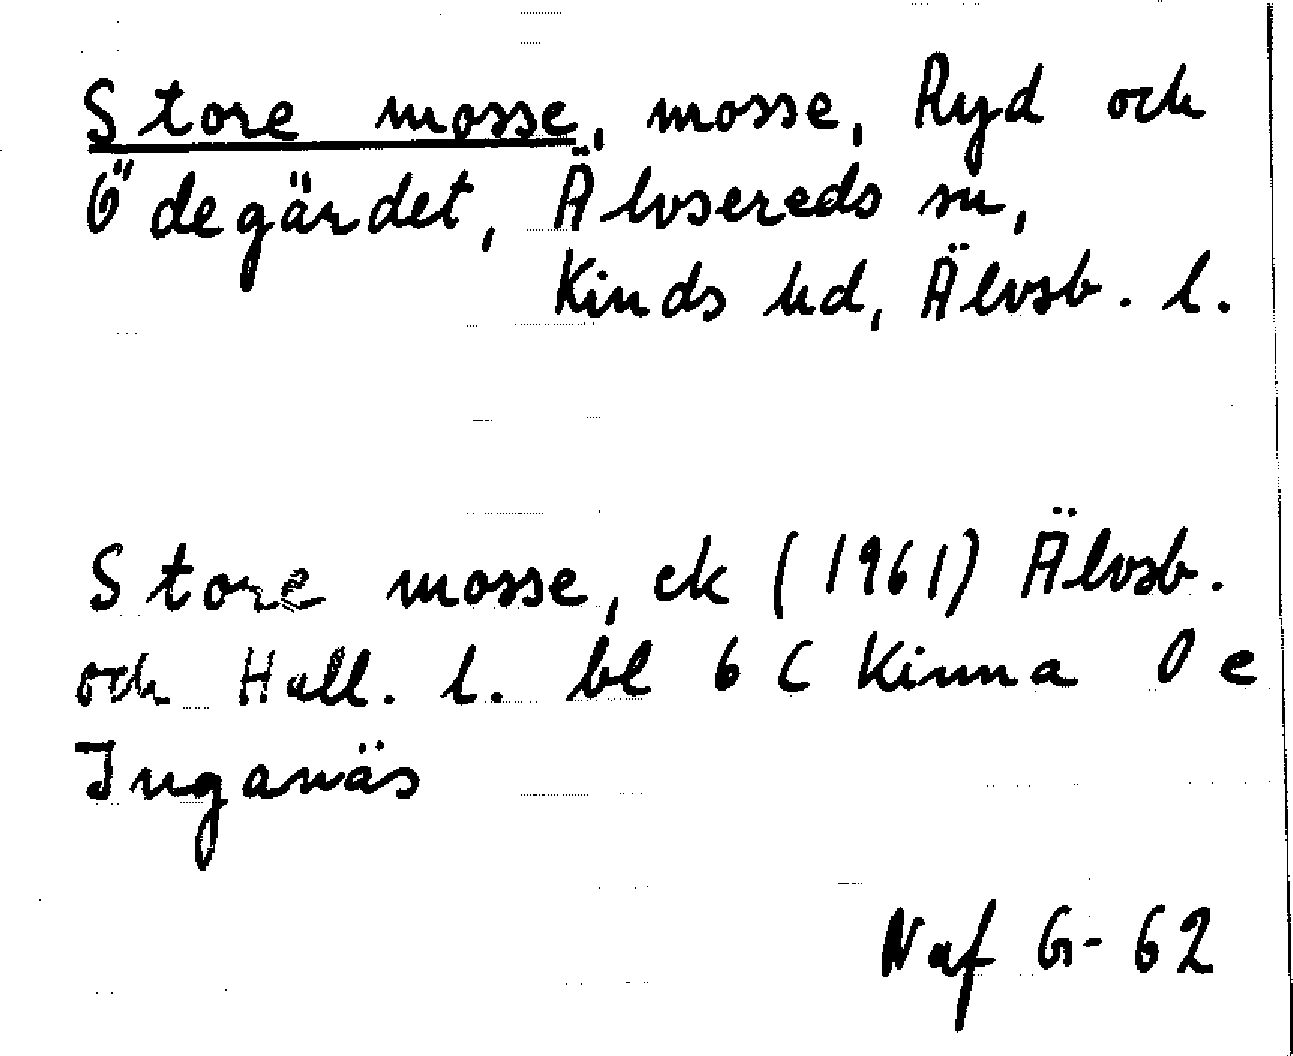 Store mosse, mosse, Ryd och
Ödegärdet, Älvsereds sn,
Kinds hd, Älvsb. l.
Store mosse, ek (1961) Älvsb.
och Hall. l. bl 6 C Kinna 0 e
Inganäs
Naf G-62